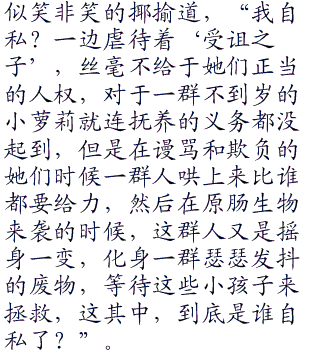 似笑非笑的揶揄道，“我自
私？一边虐待着‘受诅之
子’，丝毫不给于她们正当
的人权，对于一群不到岁的
小萝莉就连抚养的义务都没
起到，但是在谩骂和欺负的
她们时候一群人哄上来比谁
都要给力，然后在原肠生物
来袭的时候，这群人又是摇
身一变，化身一群瑟瑟发抖
的废物，等待这些小孩子来
拯救，这其中，到底是谁自
私了？”。